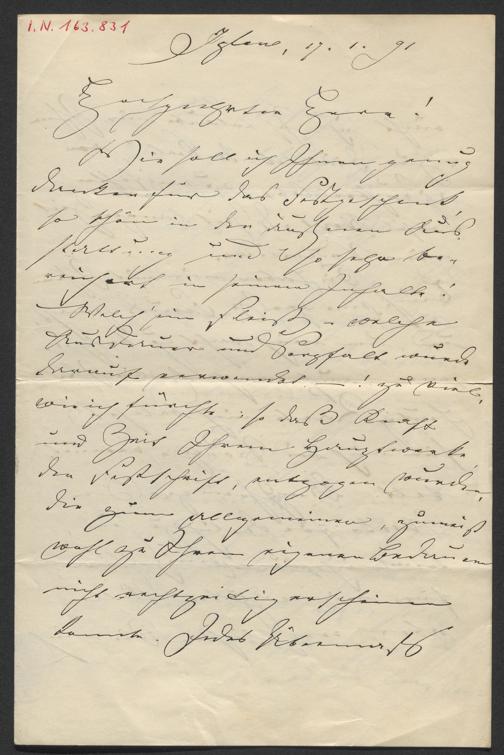 I.N. 163.831
Iglau, 17. 1. 91
Hochgeehrter Herr!
Wie soll ich Ihnen genug
danken für das Festgeschenk,
so schön in der äußeren Aus
stattung und so sehr be-
reichert in seinem Inhalte!
Welch' ein Fleiß, welche
Ausdauer und Sorgfalt wurde
darauf verwendet —! zu viel,
wie ich fürchte, so daß Kraft
und Zeit Ihrem Hauptwerke,
der Festschrift, entzogen wurden,
die zum allgemeinen, zumeist
wohl zu Ihrem eigenen Bedauern
nicht rechtzeitig erscheinen
konnte. Jedes Übermaß